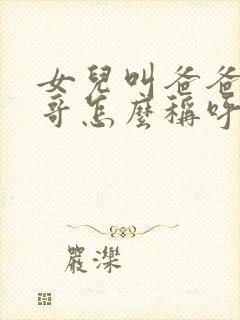 女兒叫爸爸
哥怎麼稱呼
嚴濼